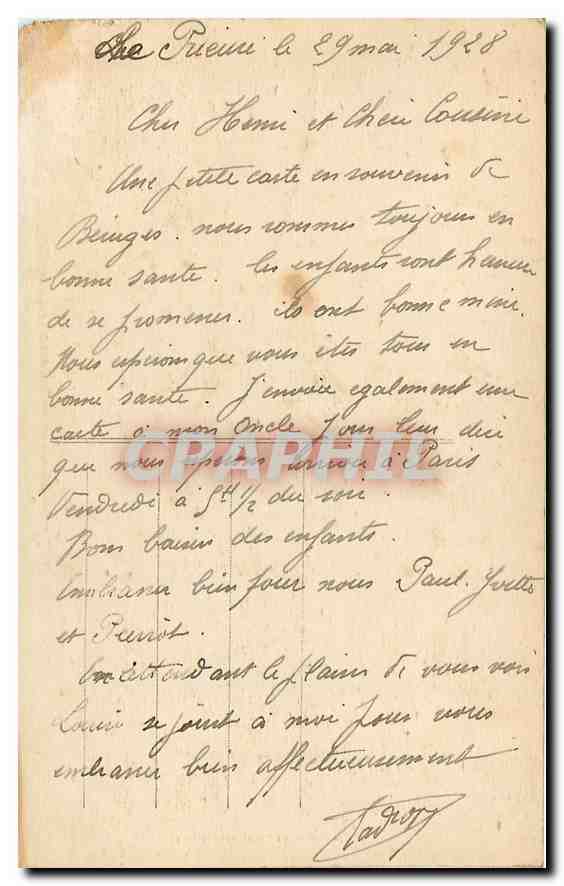 Le Prieuré le 29 mai 1928
Cher Henri et Chère Cousine
Une petite carte en souvenir de
nous sommes toujours en
bonne santé. les enfants sont heureux
de se promener. ils ont bonne mine.
Nous espérons que vous êtes tous en
bonne santé. J'envoie egalement une
carte à mon Oncle pour leur dire
que nous pensons arriver à Paris
Vendredi à 5H 1/2 du soir.
Bons baisers des enfants.
Embrasser bien pour nous Paul. Yvette
et Pierrot.
En attendant le plaisir de vous voir
Louise se joint à moi pour vous
embrasser bien affectueusement
CPARPHIL